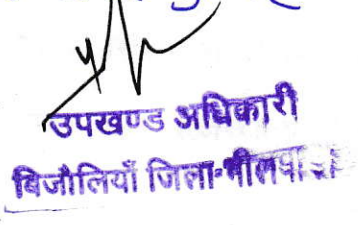 उपखण्ड अधिकारी
बिजौलियाँ जिला-भीलवाड़ा